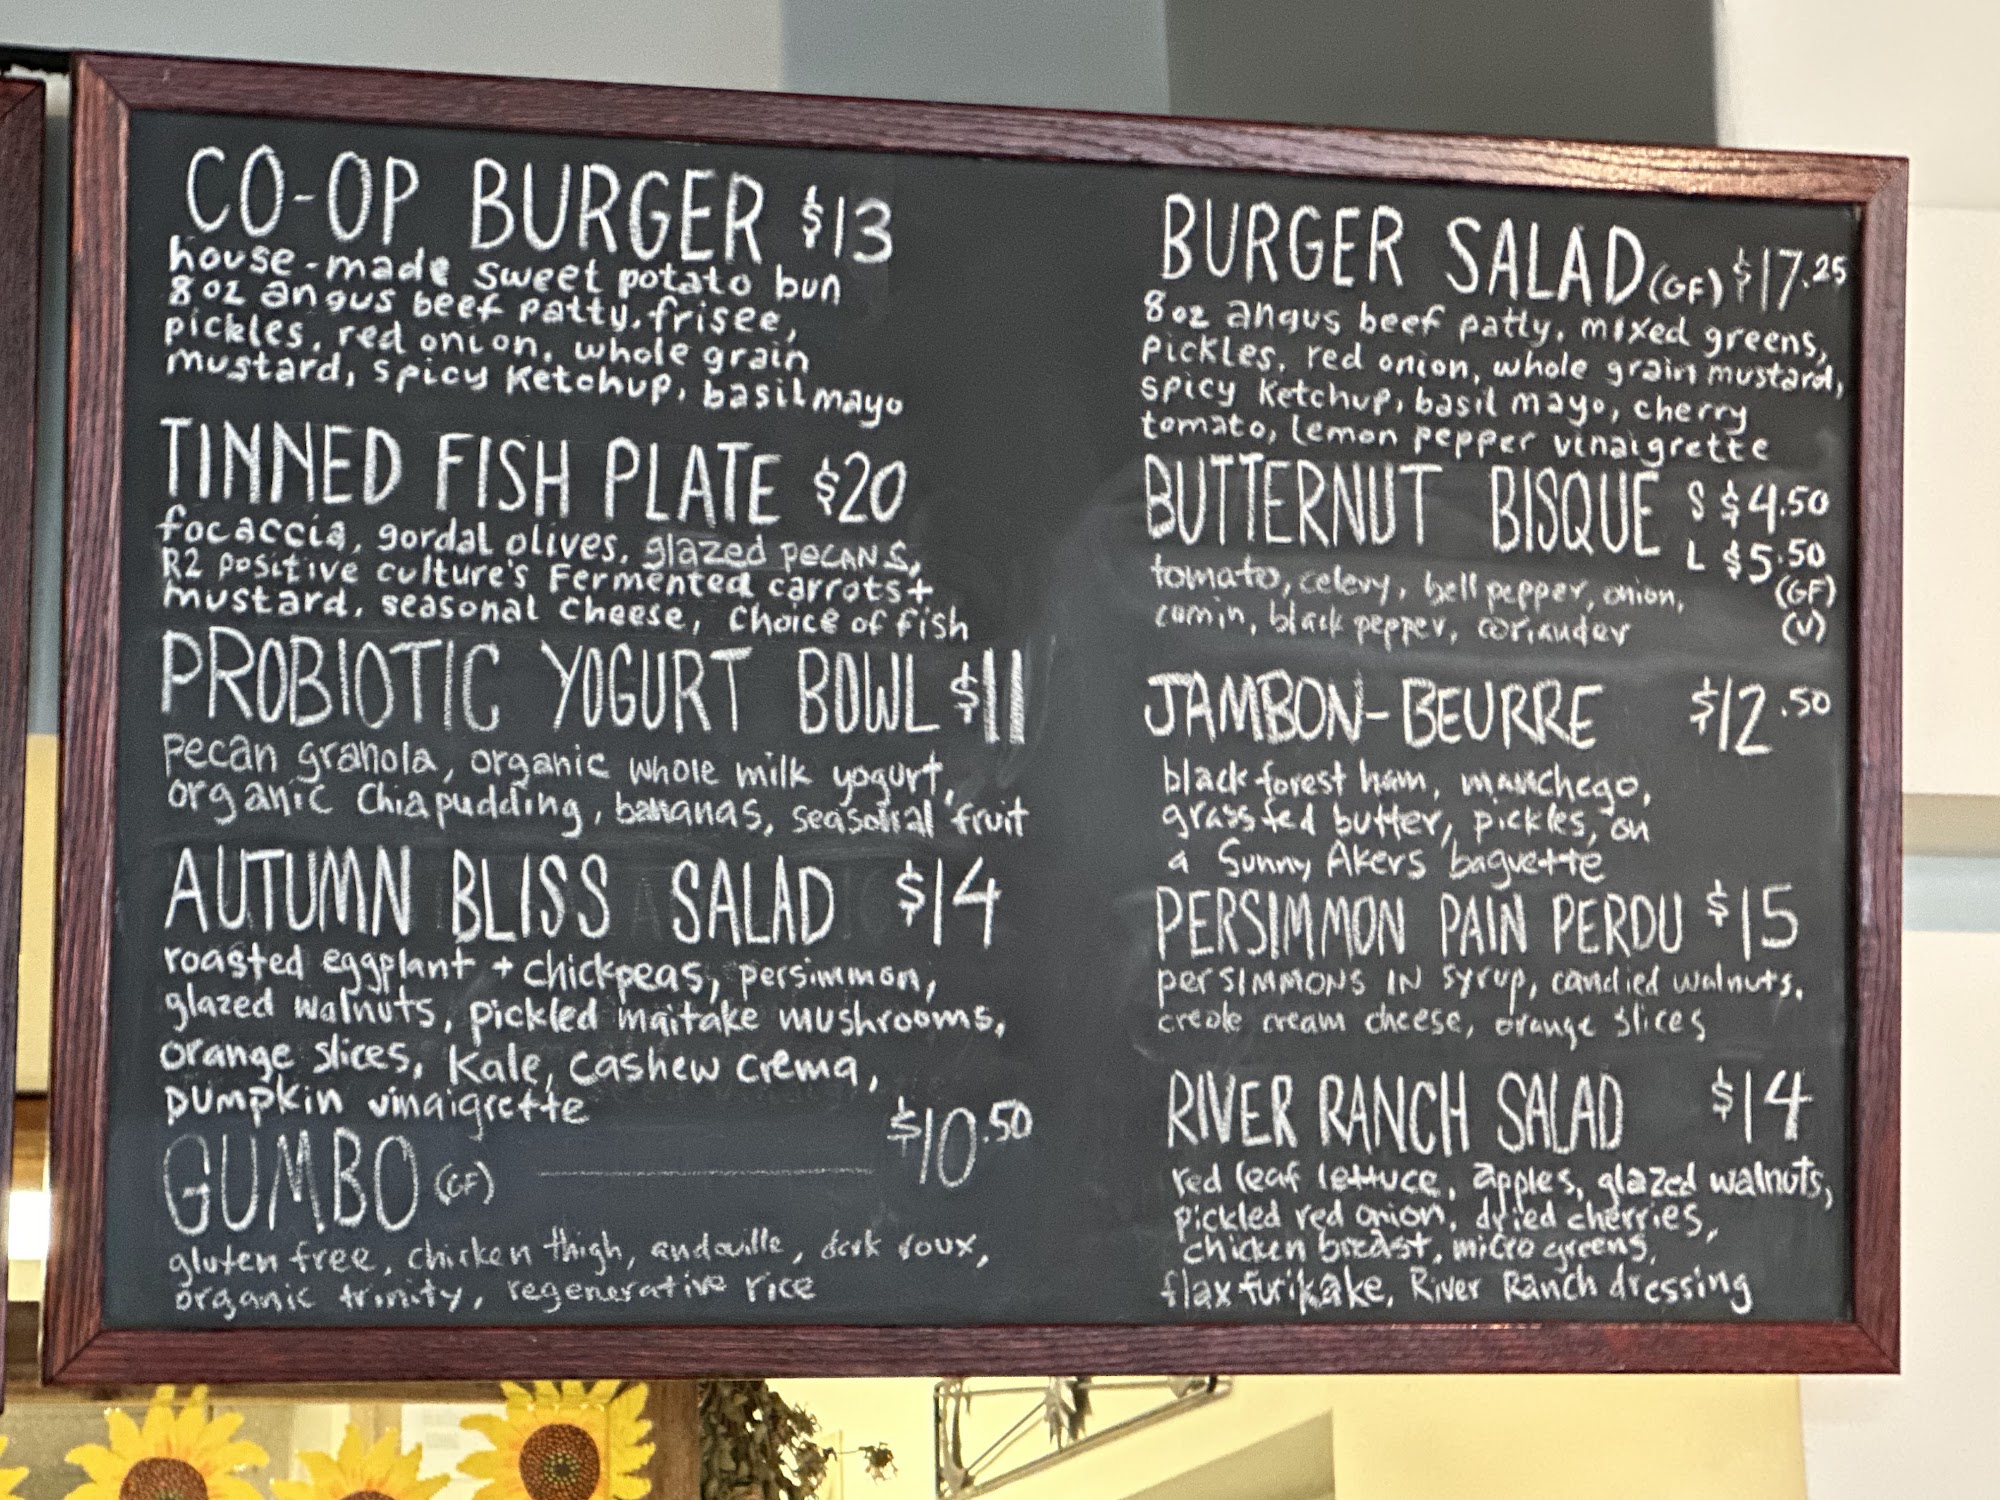 CO-OP BURGER $13
house-made sweet potato bun
8oz angus beef patty, frisee,
pickles, red onion, whole grain
mustard, spicy Ketchup, basil mayo
TINNED FISH PLATE $20
focaccia, gordal olives, glazed PECANS,
R2 positive culture's Fermented carrots +
mustard, seasonal cheese, choice of fish
PROBIOTIC YOGURT BOWL $11
pecan granola, organic whole milk yogurt,
organic Chia pudding, bananas, seasonal fruit
AUTUMN BLISS SALAD $14
roasted eggplant + chickpeas, persimmon,
glazed walnuts, pickled maitake mushrooms,
orange slices, Kale, cashew crema,
pumpkin vinaigrette
GUMBO (GF) $10.50
gluten free, chicken thigh, andouille, dark roux,
organic trinity, regenerative rice
BURGER SALAD (GF) $17.25
8oz angus beef patty, mixed greens,
Pickles, red onion, whole grain mustard,
spicy Ketchup, basil mayo, cherry
tomato, lemon pepper vinaigrette
BUTTERNUT BISQUE S $4.50
L $5.50
(GF)
(V)
tomato, celery, bell pepper, onion,
cumin, black pepper, coriander
JAMBON-BEURRE $12.50
black forest ham, manchego,
grass fed butter, pickles, on
a Sunny Akers baguette
PERSIMMON PAIN PERDU $15
perSIMMONS IN syrup, candied walnuts,
creole cream cheese, orange slices
RIVER RANCH SALAD $14
red leaf lettuce, apples, glazed walnuts,
pickled red onion, dried cherries,
chicken breast, micro greens,
flax furikake, River Ranch dressing